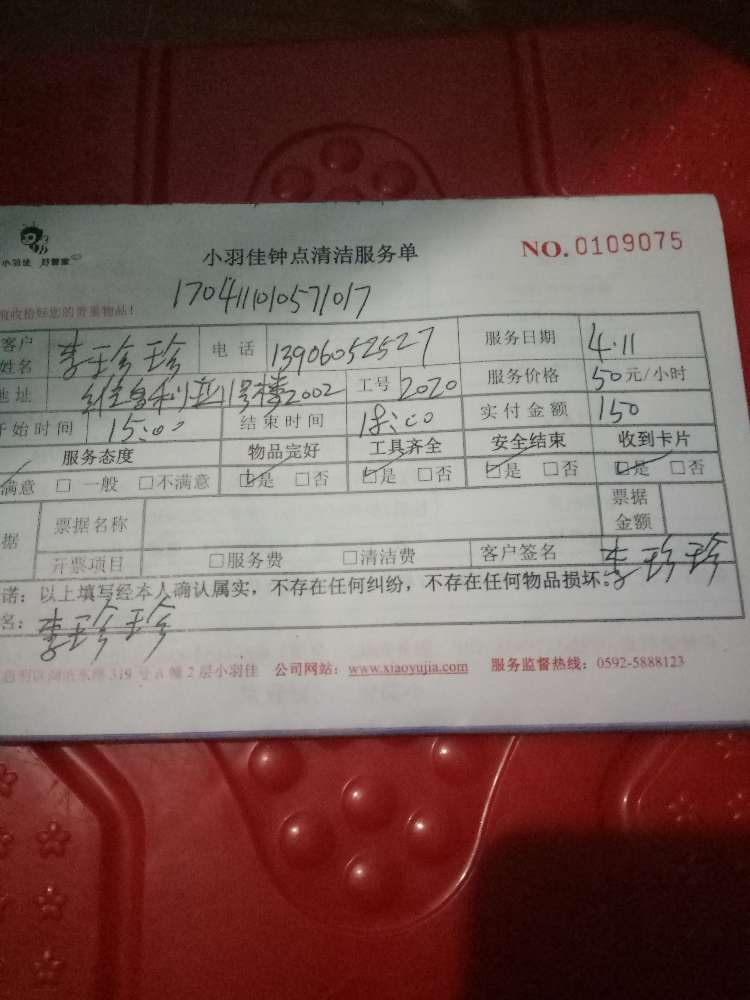 小羽佳 好管家
小羽佳钟点清洁服务单
NO. 0109075
收拾好您的贵重物品！
170411010571017
客户姓名 李珍珍 电话 13906052527 服务日期 4.11
地址 维多利亚1号楼2002 工号 2020 服务价格 50元/小时
开始时间 15:00 结束时间 18:00 实付金额 150
服务态度 物品完好 工具齐全 安全结束 收到卡片
满意 □一般 □不满意 □是 □否 □是 □否 □是 □否 □是 □否
据 票据名称 票据金额
开票项目 □服务费 □清洁费 客户签名 李珍珍
诺：以上填写经本人确认属实，不存在任何纠纷，不存在任何物品损坏。
名：李珍珍
319号A幢2层小羽佳 公司网站：www.xiaoyujia.com 服务监督热线：0592-5888123